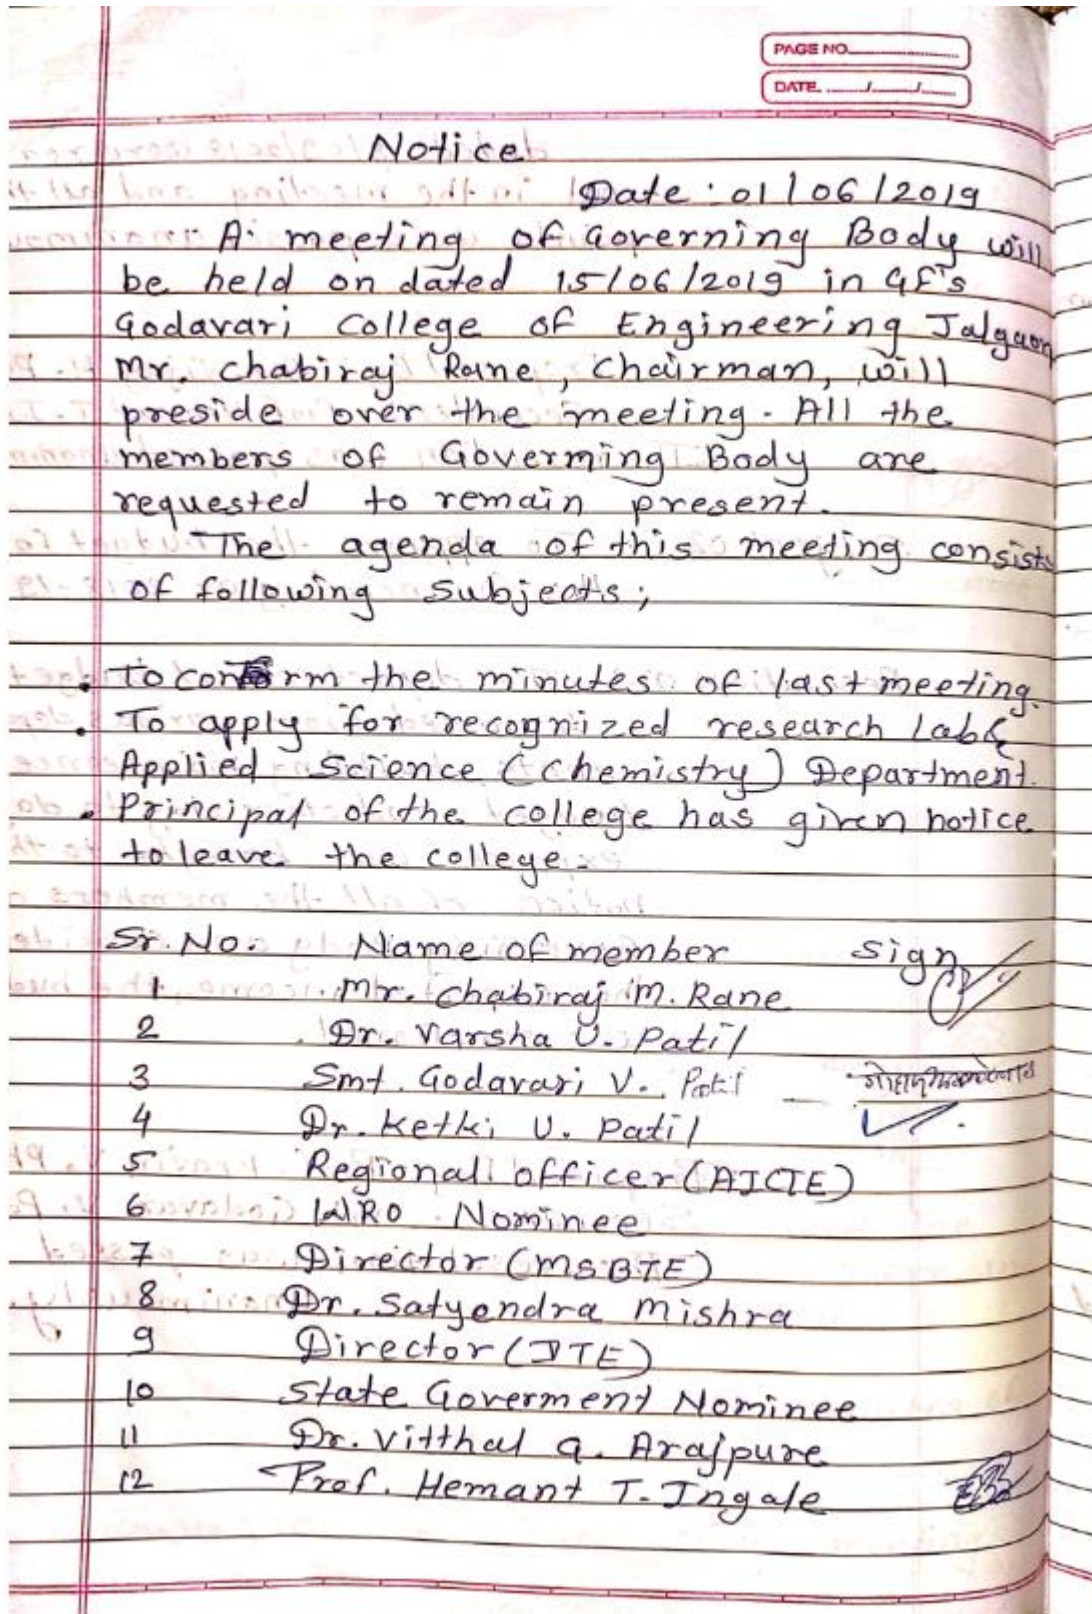 PAGE NO.
DATE. / /
Notice
Date : 01/06/2019
A meeting of Governing Body will
be held on dated 15/06/2019 in GF's
Godavari College of Engineering Jalgaon
Mr. Chabiraj Rane, Chairman, will
preside over the meeting. All the
members of Goverming Body are
requested to remain present.
The agenda of this meeting consists
of following subjects;
• To confirm the minutes of last meeting.
• To apply for recognized research Lab
Applied Science (Chemistry) Department.
• Principal of the college has given notice
to leave the college.
Sr. No. Name of member Sign
1 Mr. Chabiraj M. Rane
2 Dr. Varsha U. Patil
3 Smt. Godavari V. Patil
4 Dr. Ketki U. Patil
5 Regional officer (AICTE)
6 WRO Nominee
7 Director (MSBTE)
8 Dr. Satyendra Mishra
9 Director (DTE)
10 State Goverment Nominee
11 Dr. Vitthal G. Arajpure
12 Prof. Hemant T. Ingale